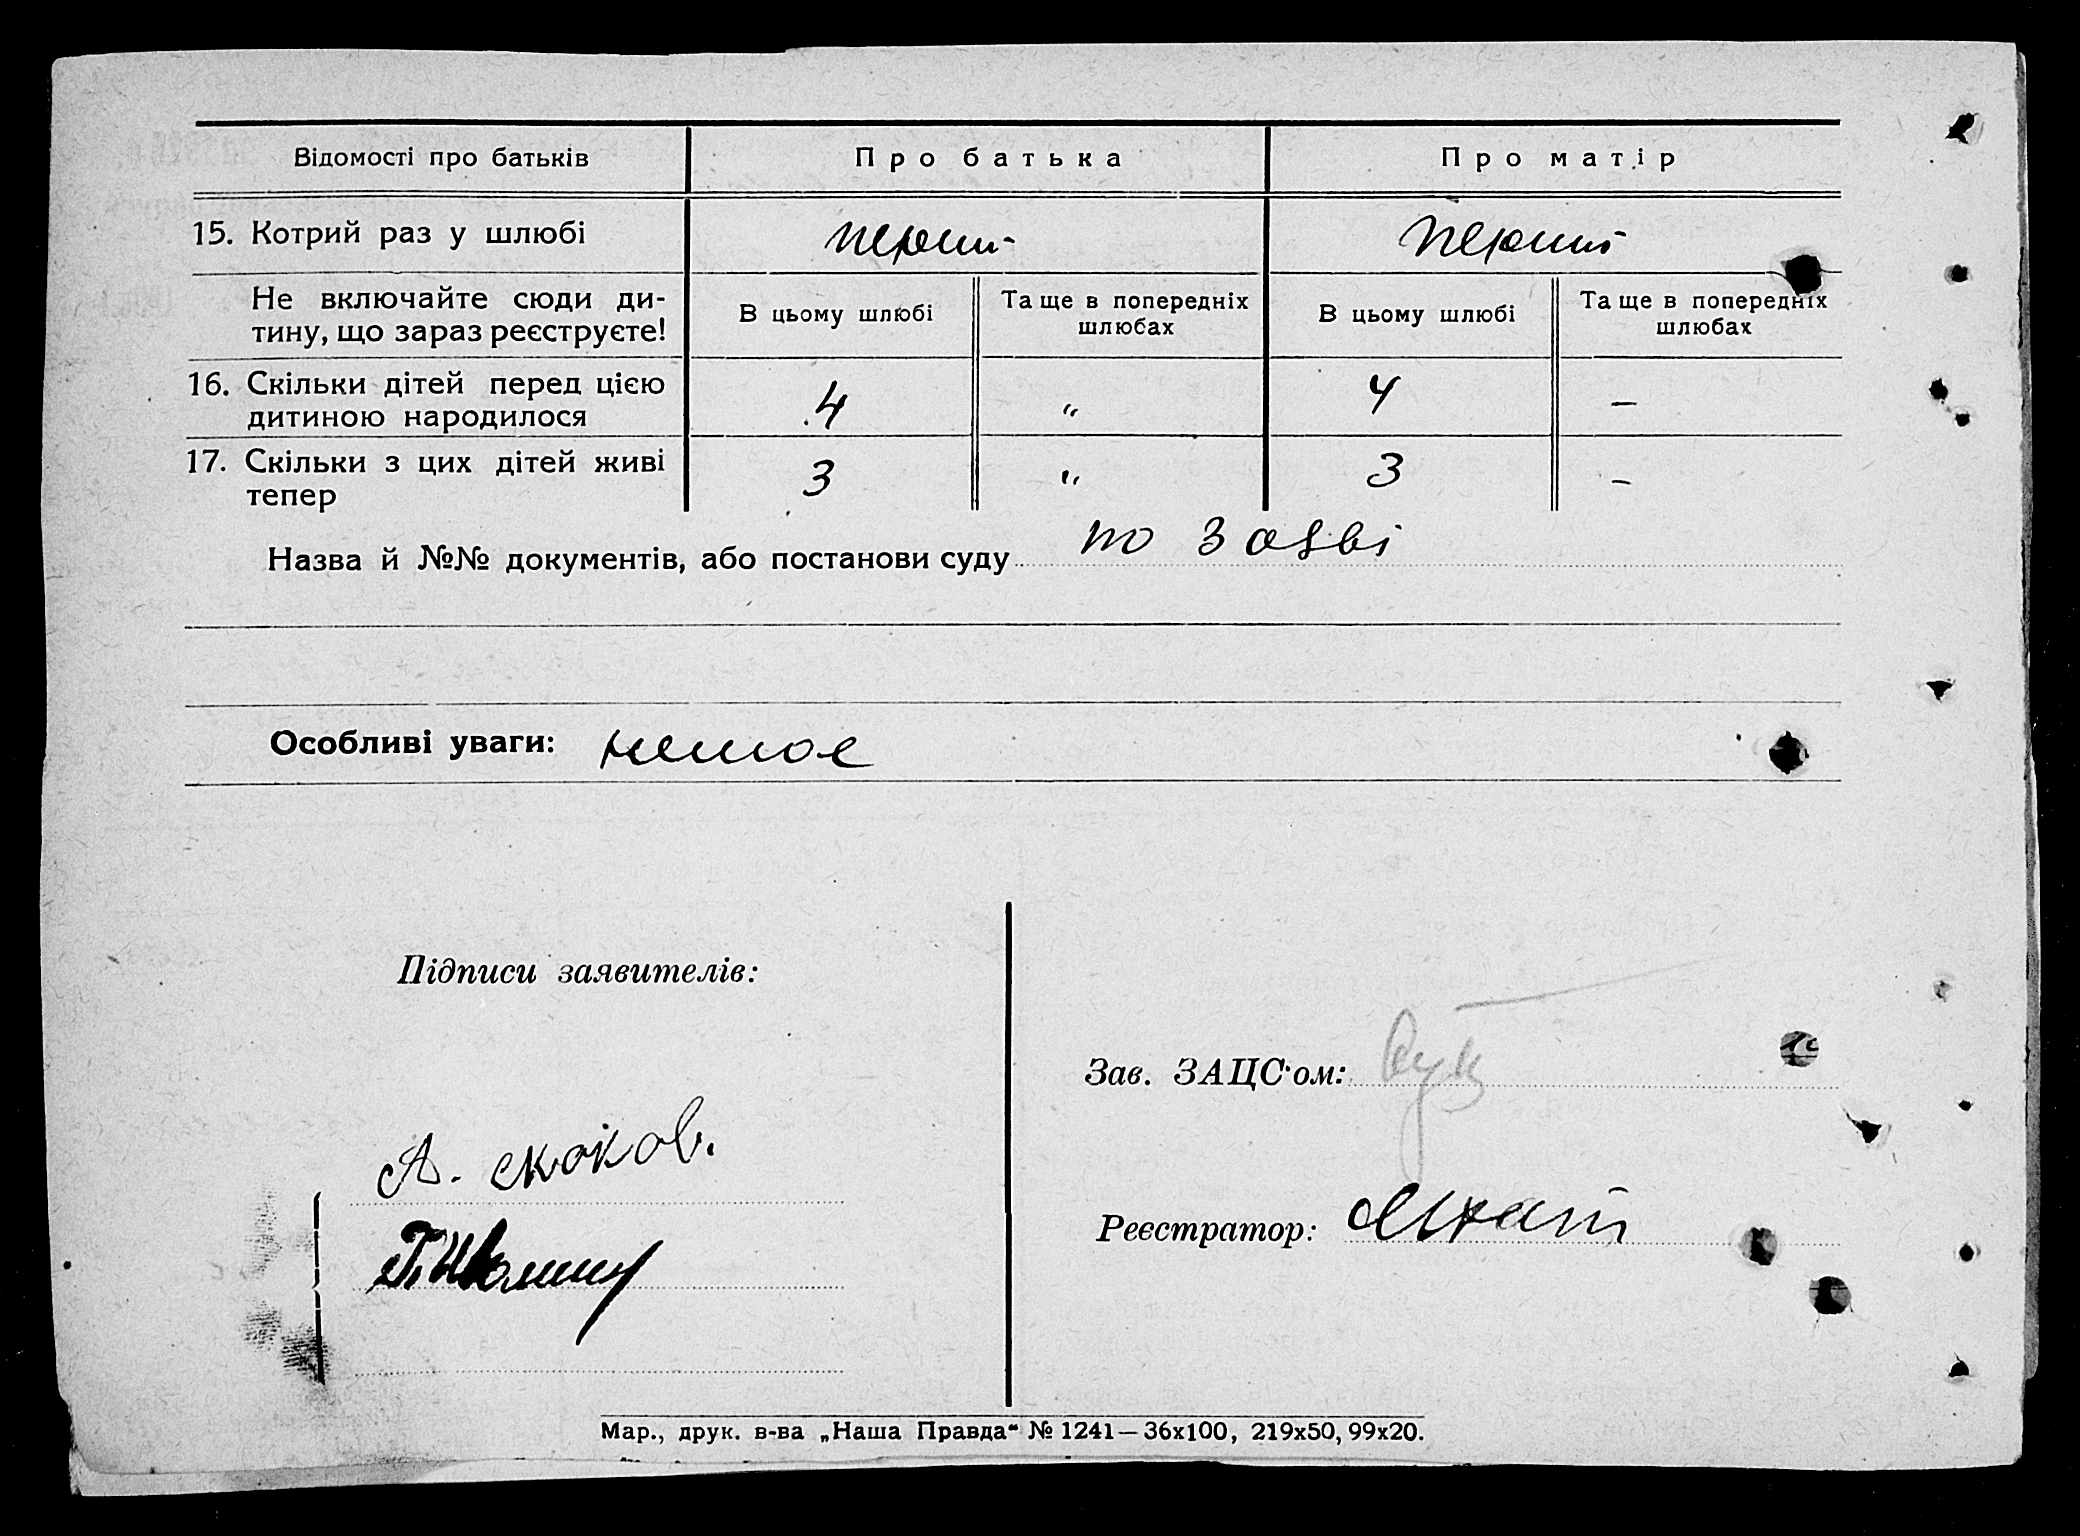 Відомості про батьків Про батька Про матір
15. Котрий раз у шлюбі перший перший
Не включайте сюди ди-
тину, що зараз реєструєте!
В цьому шлюбі
Та ще в попередніх
шлюбах
В цьому шлюбі
Та ще в попередніх
шлюбах
16. Скільки дітей перед цією
дитиною народилося
4 " 4 –
17. Скільки з цих дітей живі
тепер
3 " 3 –
Назва й №№ документів, або постанови суду по заяві
Особливі уваги: немає
Підписи заявителів:
Зав. ЗАЦС'ом:
А. скоков.
Реєстратор:
Мар., друк. в-ва „Наша Правда" № 1241—36х100, 219х50, 99х20.